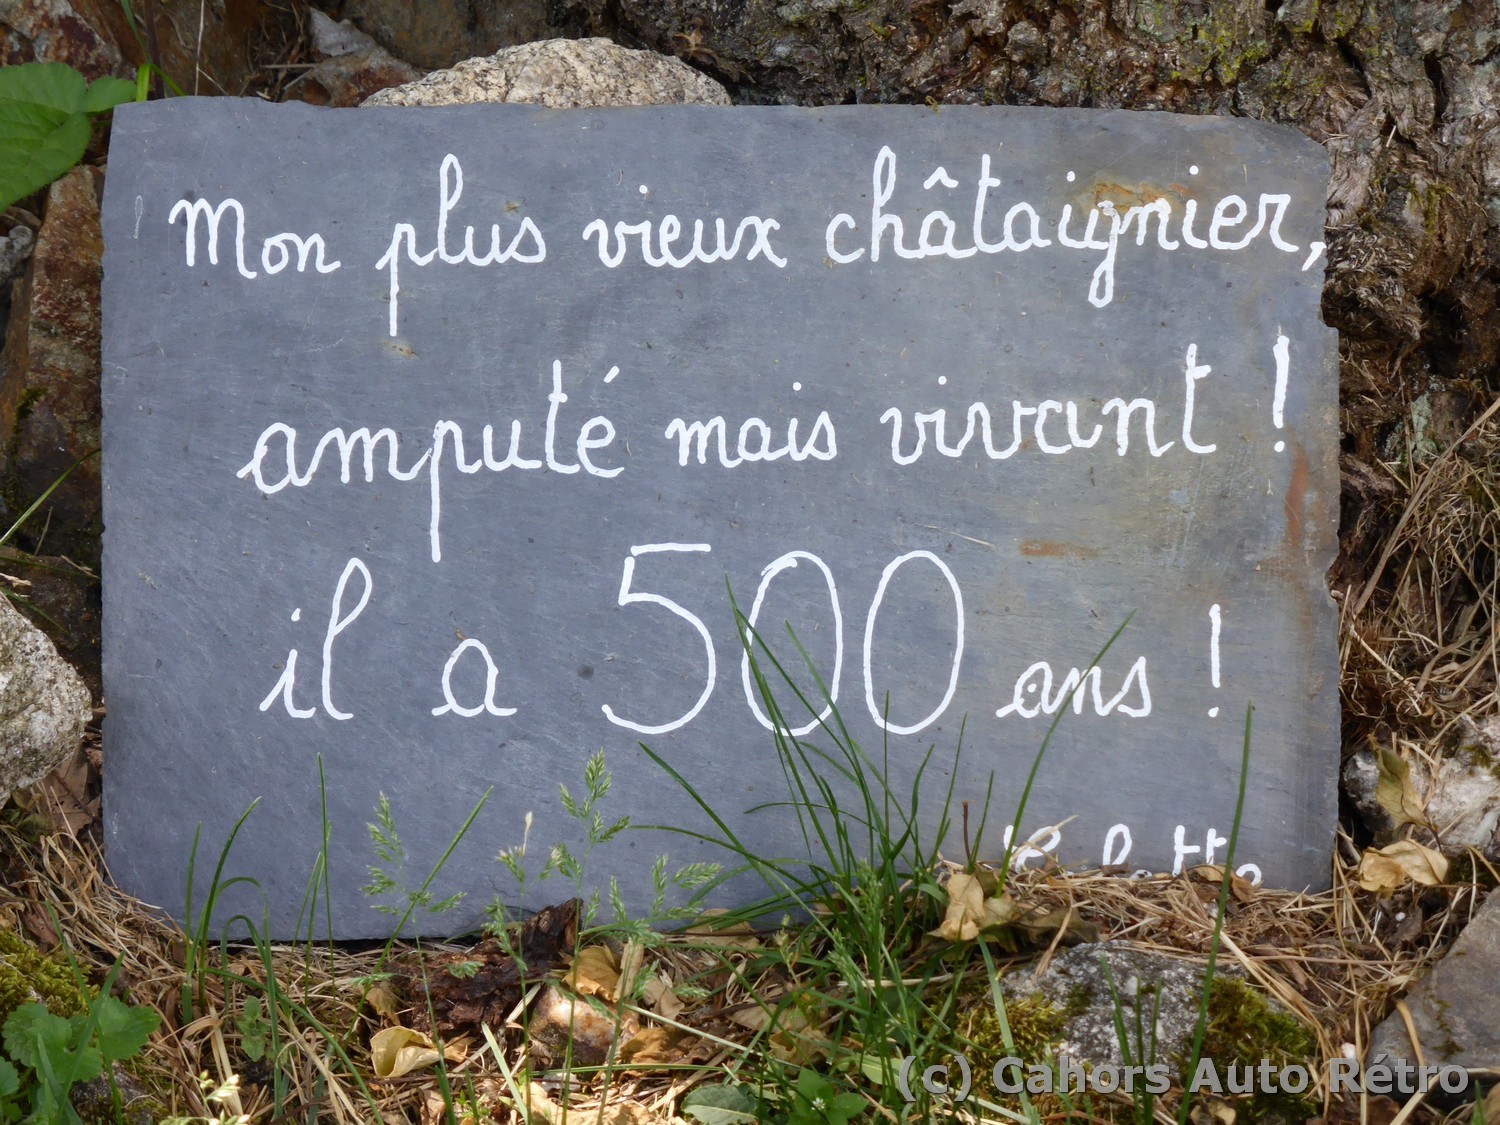 Mon plus vieux châtaignier,
amputé mais vivant !
il a 500 ans !
(c) Cahors Auto Rétro